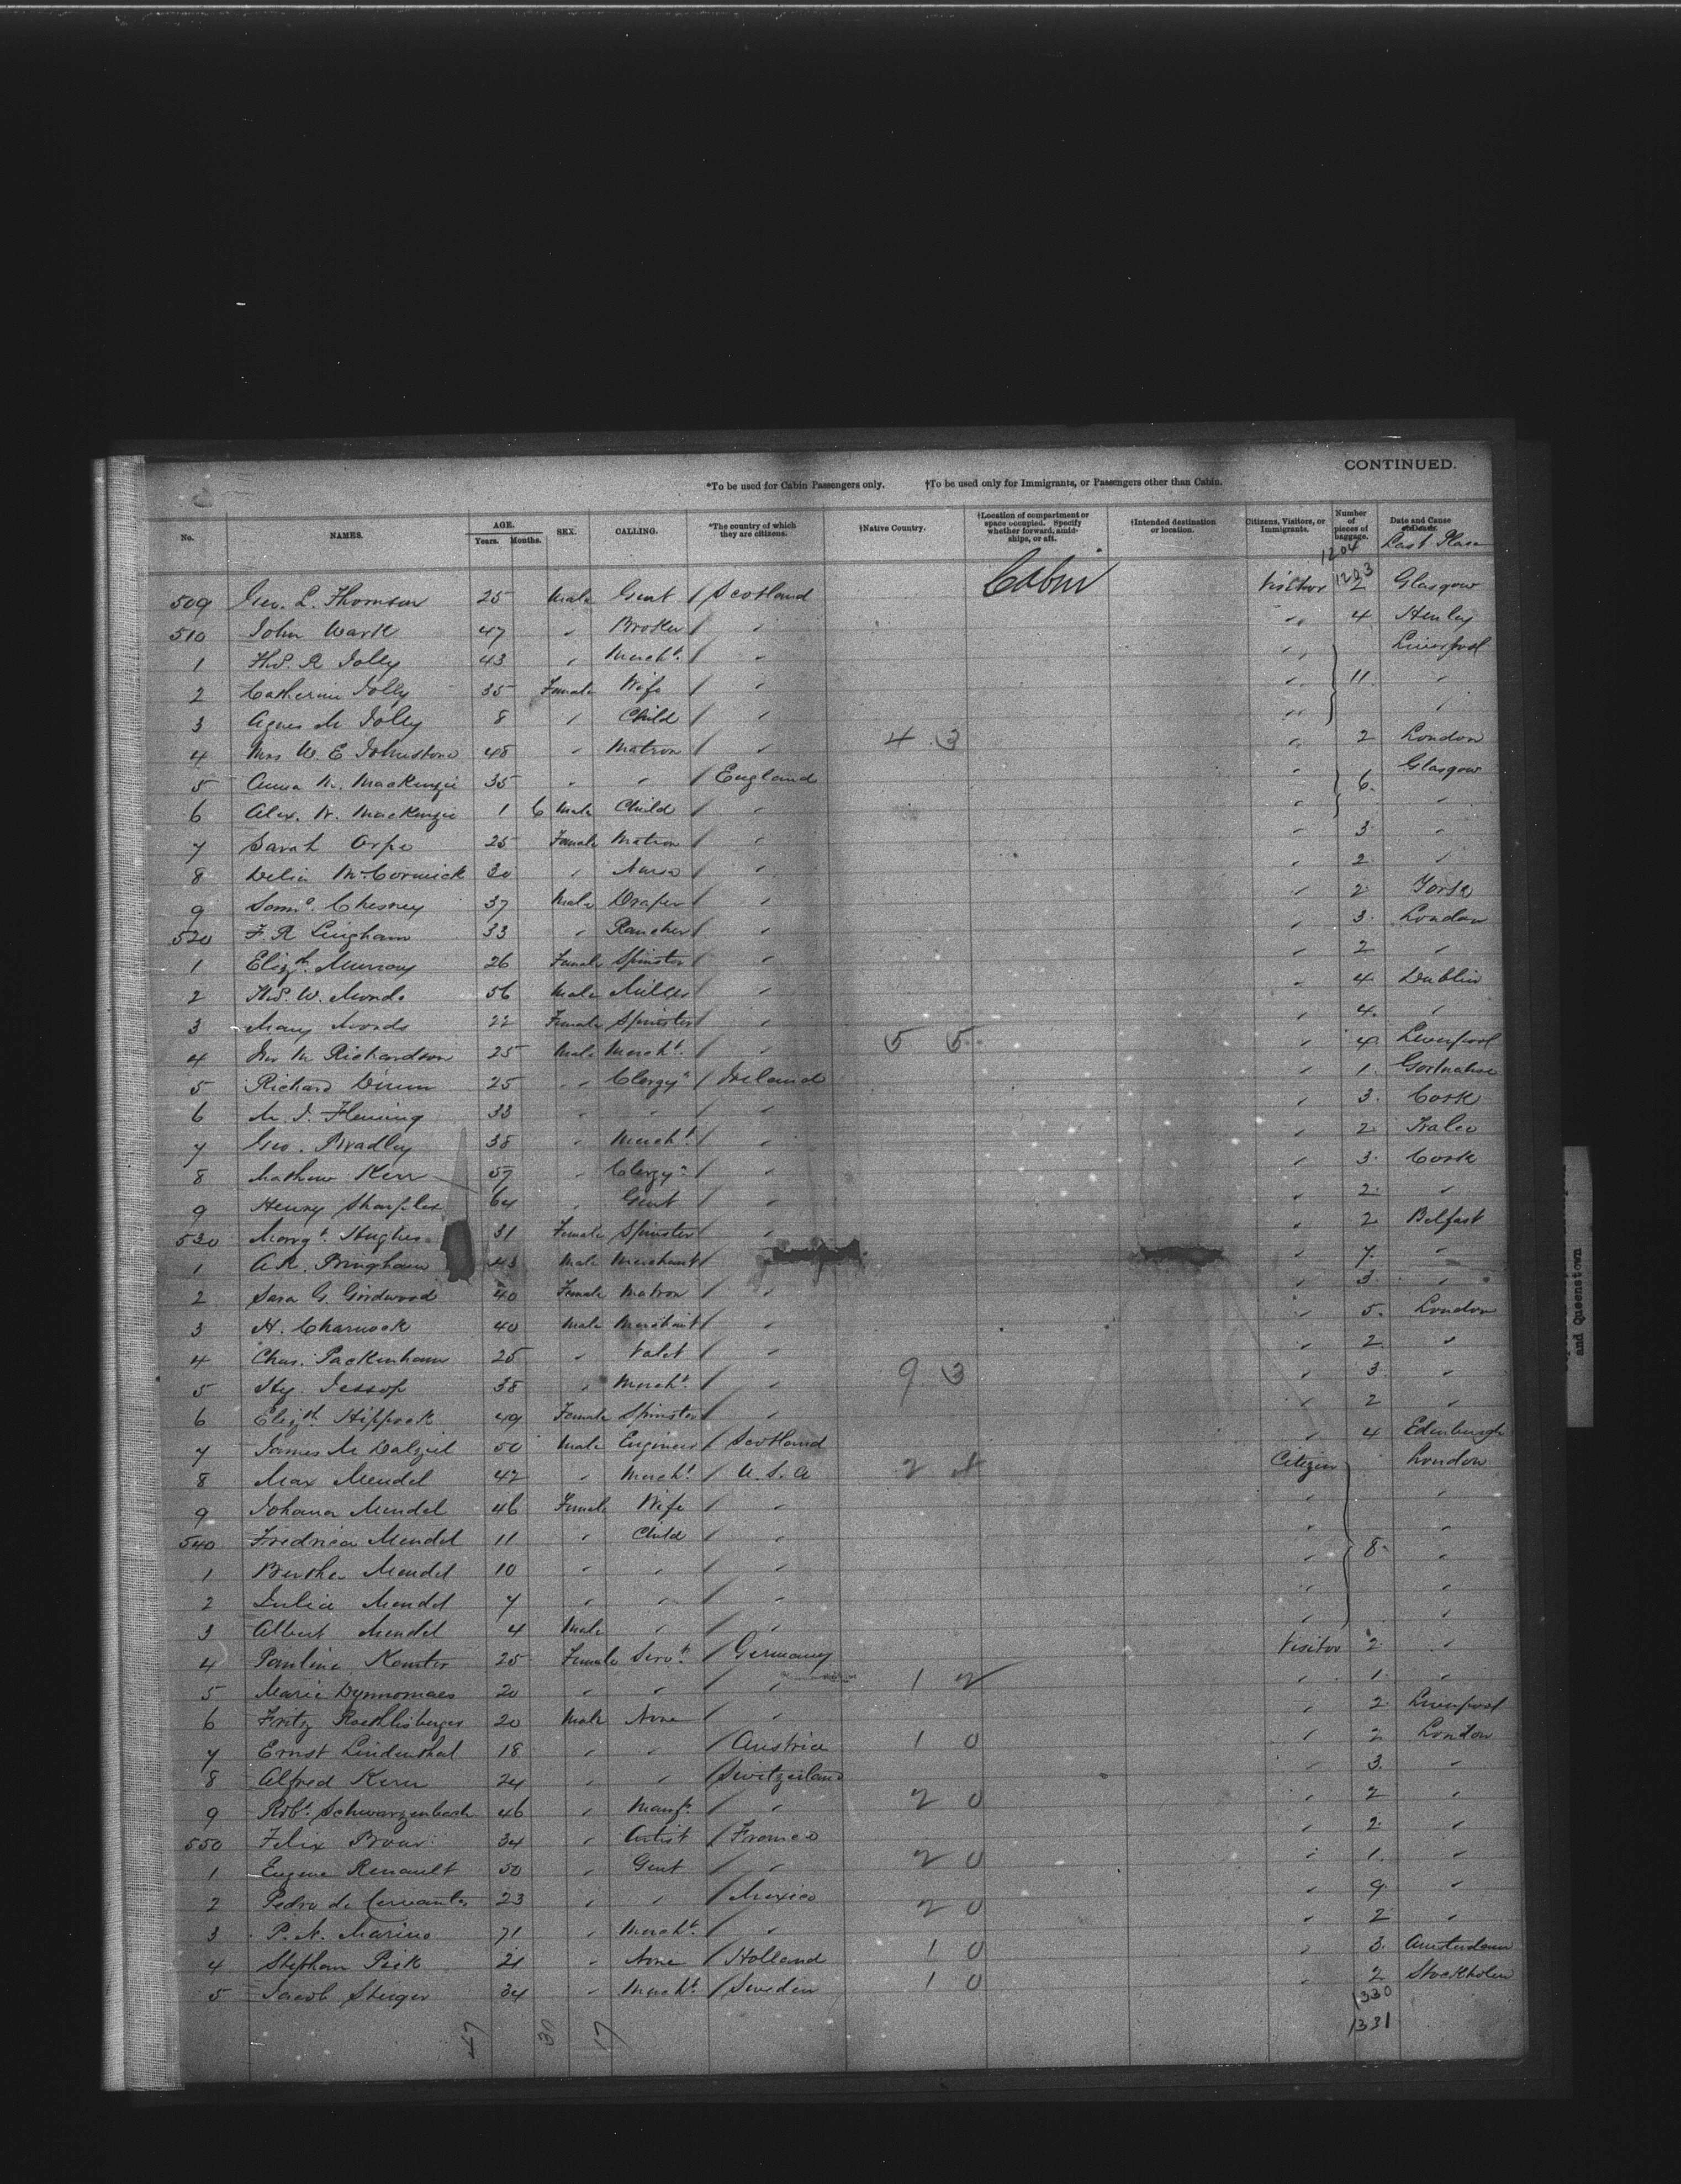 CONTINUED.
*To be used for Cabin Passengers only. †To be used only for Immigrants, or Passengers other than Cabin.
No. NAMES. AGE. Years. Months. SEX. CALLING. *The country of which they are citizens. †Native Country. †Location of compartment or space occupied. Specify whether forward, amidships, or aft. †Intended destination or location. Citizens, Visitors, or Immigrants. Number of pieces of baggage. Date and Cause
Last Place
1204
Cabin
1203
509 Geo. L. Thomson 25 Male Gent / Scotland Visitor 2 Glasgow
510 John Wark 47 " Broker / " " 4 Henley
1 Thos. R Jolly 43 " Mercht. / " " Liverpool
2 Catherine Jolly 35 Female Wife / " " 11. "
3 Agnes M Jolly 8 " Child / " " "
4 Mrs W. E Johnstone 48 " Matron / " 4 3 " 2 London
5 Anna M. MacKenzie 35 " " / England " Glasgow
6 Alex. W. MacKenzie 1 6 Male Child / " " 6. "
7 Sarah Orpe 25 Female Matron / " " 3. "
8 Delia McCormick 30 " Nurse / " " 2 "
9 Saml. Chesney 37 Male Draper / " " 2 York
520 F. R Lingham 33 " Rancher / " " 3. London
1 Elizth. Murray 26 Female Spinster / " " 2 "
2 Thos. W. 56 Male Miller / " " 4 Dublin
3 Mary 22 Female Spinster / " " 4. "
4 M Richardson 25 Male Mercht. / " 5 5 " 4. Liverpool
5 Richard 25 " Clergyn / Ireland " 1.
6 M. J. Fleming 33 " " / " " 3. Cork
7 Geo. Bradley 38 " Mercht. / " " 2
8 Mathew Kerr 57 " Clergyn / " " 3. Cork
9 Henry Sharples 64 " Gent / " " 2. "
530 Margt. Hughes 31 Female Spinster / " " 2 Belfast
1 A.R. Bringham 43 Male Merchant / " " 7. "
2 Sara G. Girdwood 40 Female Matron / " " 3. "
3 H. Charnock 40 Male Merchant / " " 5. London
4 Chas. Packenham 25 " Valet / " " 2 "
5 Hy. Jessop 38 " Mercht. / " 9 3 " 3 "
6 Elizth. Hippock 49 Female Spinster / " " 2 "
7 James M Dalziel 50 Male Engineer / Scotland " 4 Edinburgh
8 Max Mendel 42 " Mercht. / U. S. A 2 Citizen London
9 Johana Mendel 46 Female Wife / " " "
540 Fredrica Mendel 11 " Child / " " "
1 Bertha Mendel 10 " " / " " 8. "
2 Julia Mendel 7 " " / " " "
3 Albert Mendel 4 Male " / " " "
4 Pauline 25 Female Servt. / Germany Visitor 2. "
5 Marie Dynnomaes 20 " " / " 1 2 " 1. "
6 Fritz Roethlisberger 20 Male None / " " 2. Liverpool
7 Ernst Lindenthal 18 " " / Austria 1 0 " 2 London
8 Alfred Kern 24 " " / Switzerland " 3. "
9 Robt. Schwarzenbach 46 " Manfr. / " 2 0 " 2 "
550 Felix 34 " Artist / France " 2. "
1 Eugene Renault 50 " Gent / " 2 0 " 1. "
2 Pedro de Cervantes 23 " " / Mexico " 9. "
3 P. A. Marino 71 " Mercht. / " 2 0 " 2 "
4 Stephan Pick 21 " None / Holland 1 0 " 3. Amsterdam
5 Jacob Steiger 34 " Mercht. / Sweden 1 0 " 2 Stockholm
1330
1331
47 30 17
and Queenstown